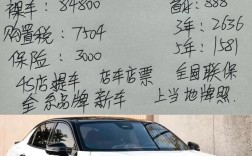 裸车：84800 首付：888
购置税：7504 3年：2636
保险：3000 5年：1581
4S店提车 店车店票 全国联保
全系品牌新车 上当地牌照